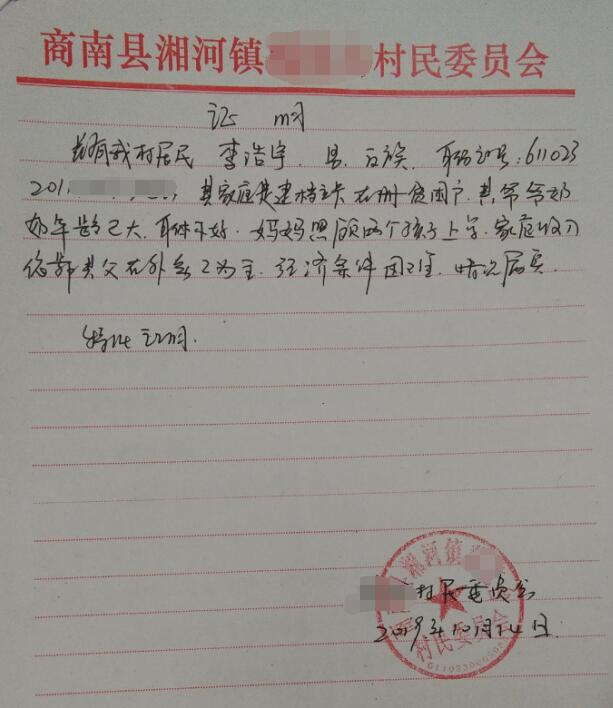 商南县湘河镇 村民委员会
证 明
兹有我村居民 李浩宇 男 汉族 身份证号:611023
201 其家庭是建档立卡在册贫困户 其爷爷奶
奶年龄已大 身体不好 妈妈照顾两个孩子上学 家庭收入
依靠其父在外务工为主 经济条件困难 情况属实
特此证明
湘河镇
村民委员会
村民委员会
2019年10月14日